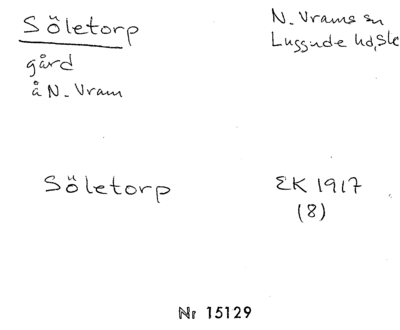 Söletorp
gård
å N. Vram
N. Vrams sn
Luggude hd, Sk
Söletorp
EK 1917
(8)
Nr 15129